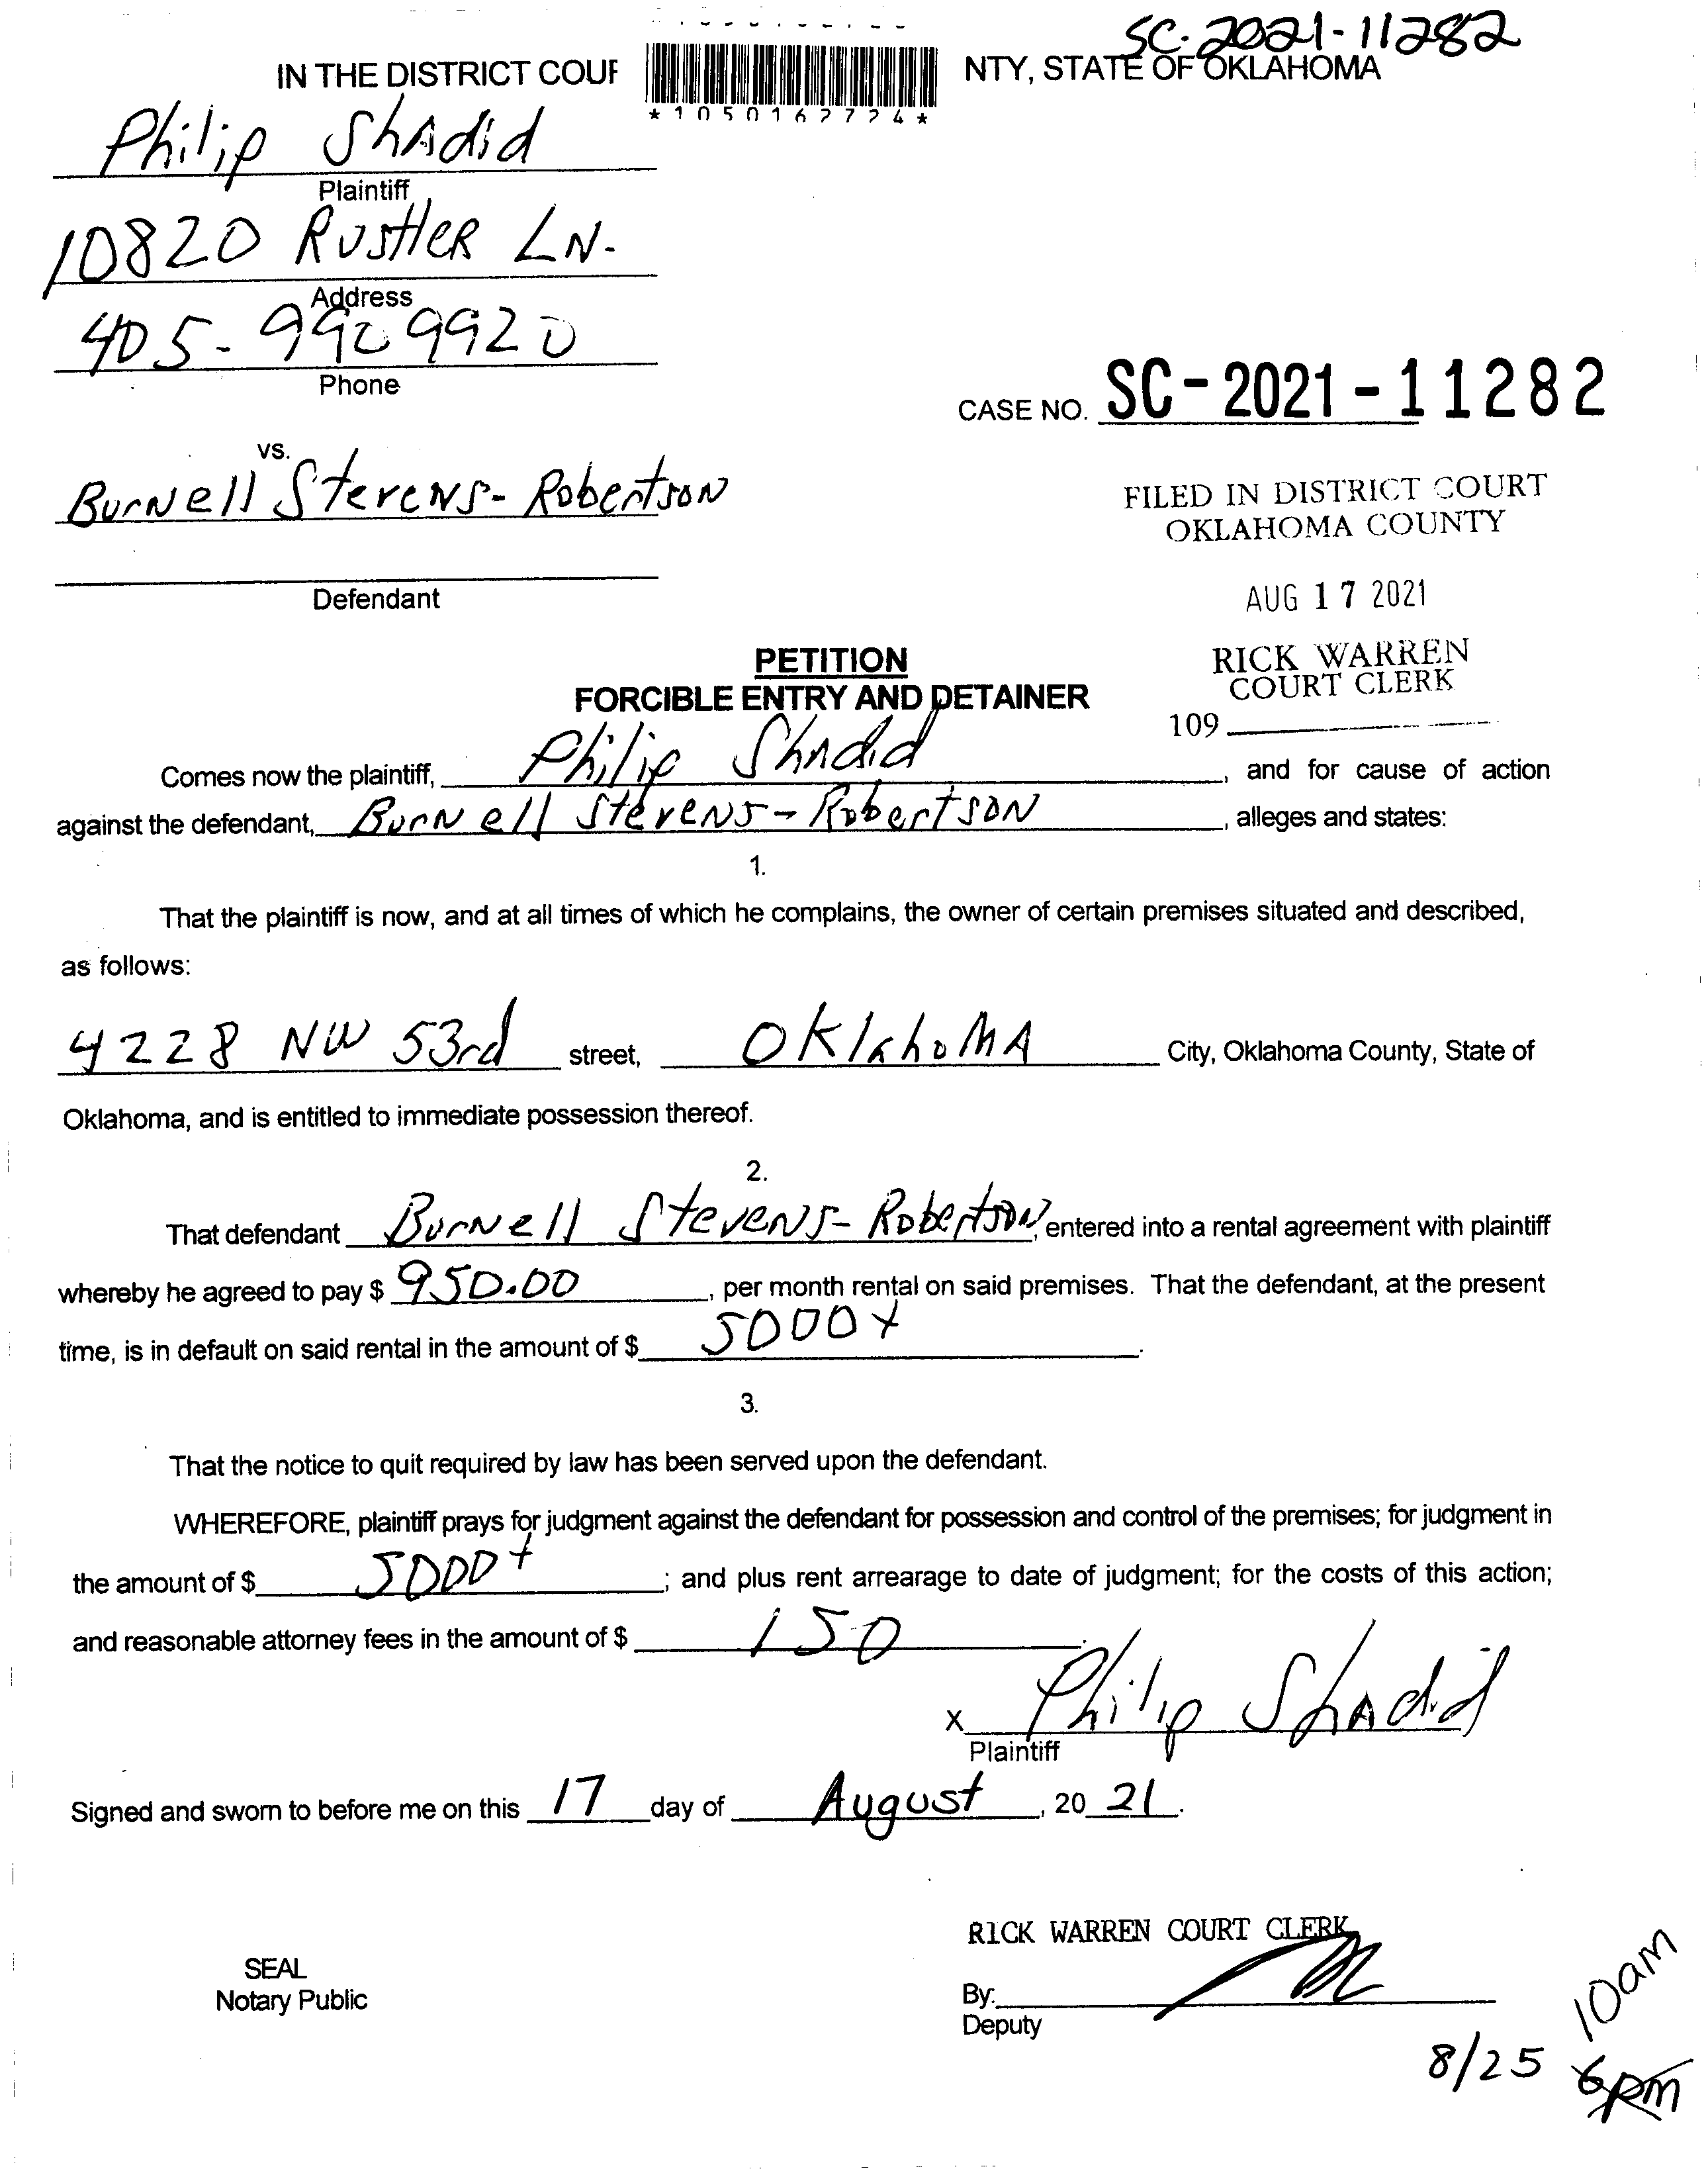 SC-2021-11282
IN THE DISTRICT COUR NTY, STATE OF OKLAHOMA
*1050162724*
Philip Shadid
Plaintiff
10820 Rustler LN.
Address
405-990 9920
Phone
CASE NO. SC-2021-11282
vs.
Burnell Stevens-Robertson
FILED IN DISTRICT COURT
OKLAHOMA COUNTY
Defendant
AUG 17 2021
PETITION
RICK WARREN
COURT CLERK
FORCIBLE ENTRY AND DETAINER
109
Comes now the plaintiff, Philip Shadid, and for cause of action
against the defendant, Burnell Stevens-Robertson, alleges and states:
1.
That the plaintiff is now, and at all times of which he complains, the owner of certain premises situated and described,
as follows:
4228 NW 53rd street, Oklahoma City, Oklahoma County, State of
Oklahoma, and is entitled to immediate possession thereof.
2.
That defendant Burnell Stevens-Robertson, entered into a rental agreement with plaintiff
whereby he agreed to pay $ 950.00, per month rental on said premises. That the defendant, at the present
time, is in default on said rental in the amount of $ 5000+.
3.
That the notice to quit required by law has been served upon the defendant.
WHEREFORE, plaintiff prays for judgment against the defendant for possession and control of the premises; for judgment in
the amount of $ 5000+; and plus rent arrearage to date of judgment; for the costs of this action;
and reasonable attorney fees in the amount of $ 150.
X Philip Shadid
Plaintiff
Signed and sworn to before me on this 17 day of August, 20 21.
RICK WARREN COURT CLERK
SEAL
Notary Public
By:
Deputy
10am
8/25 6pm